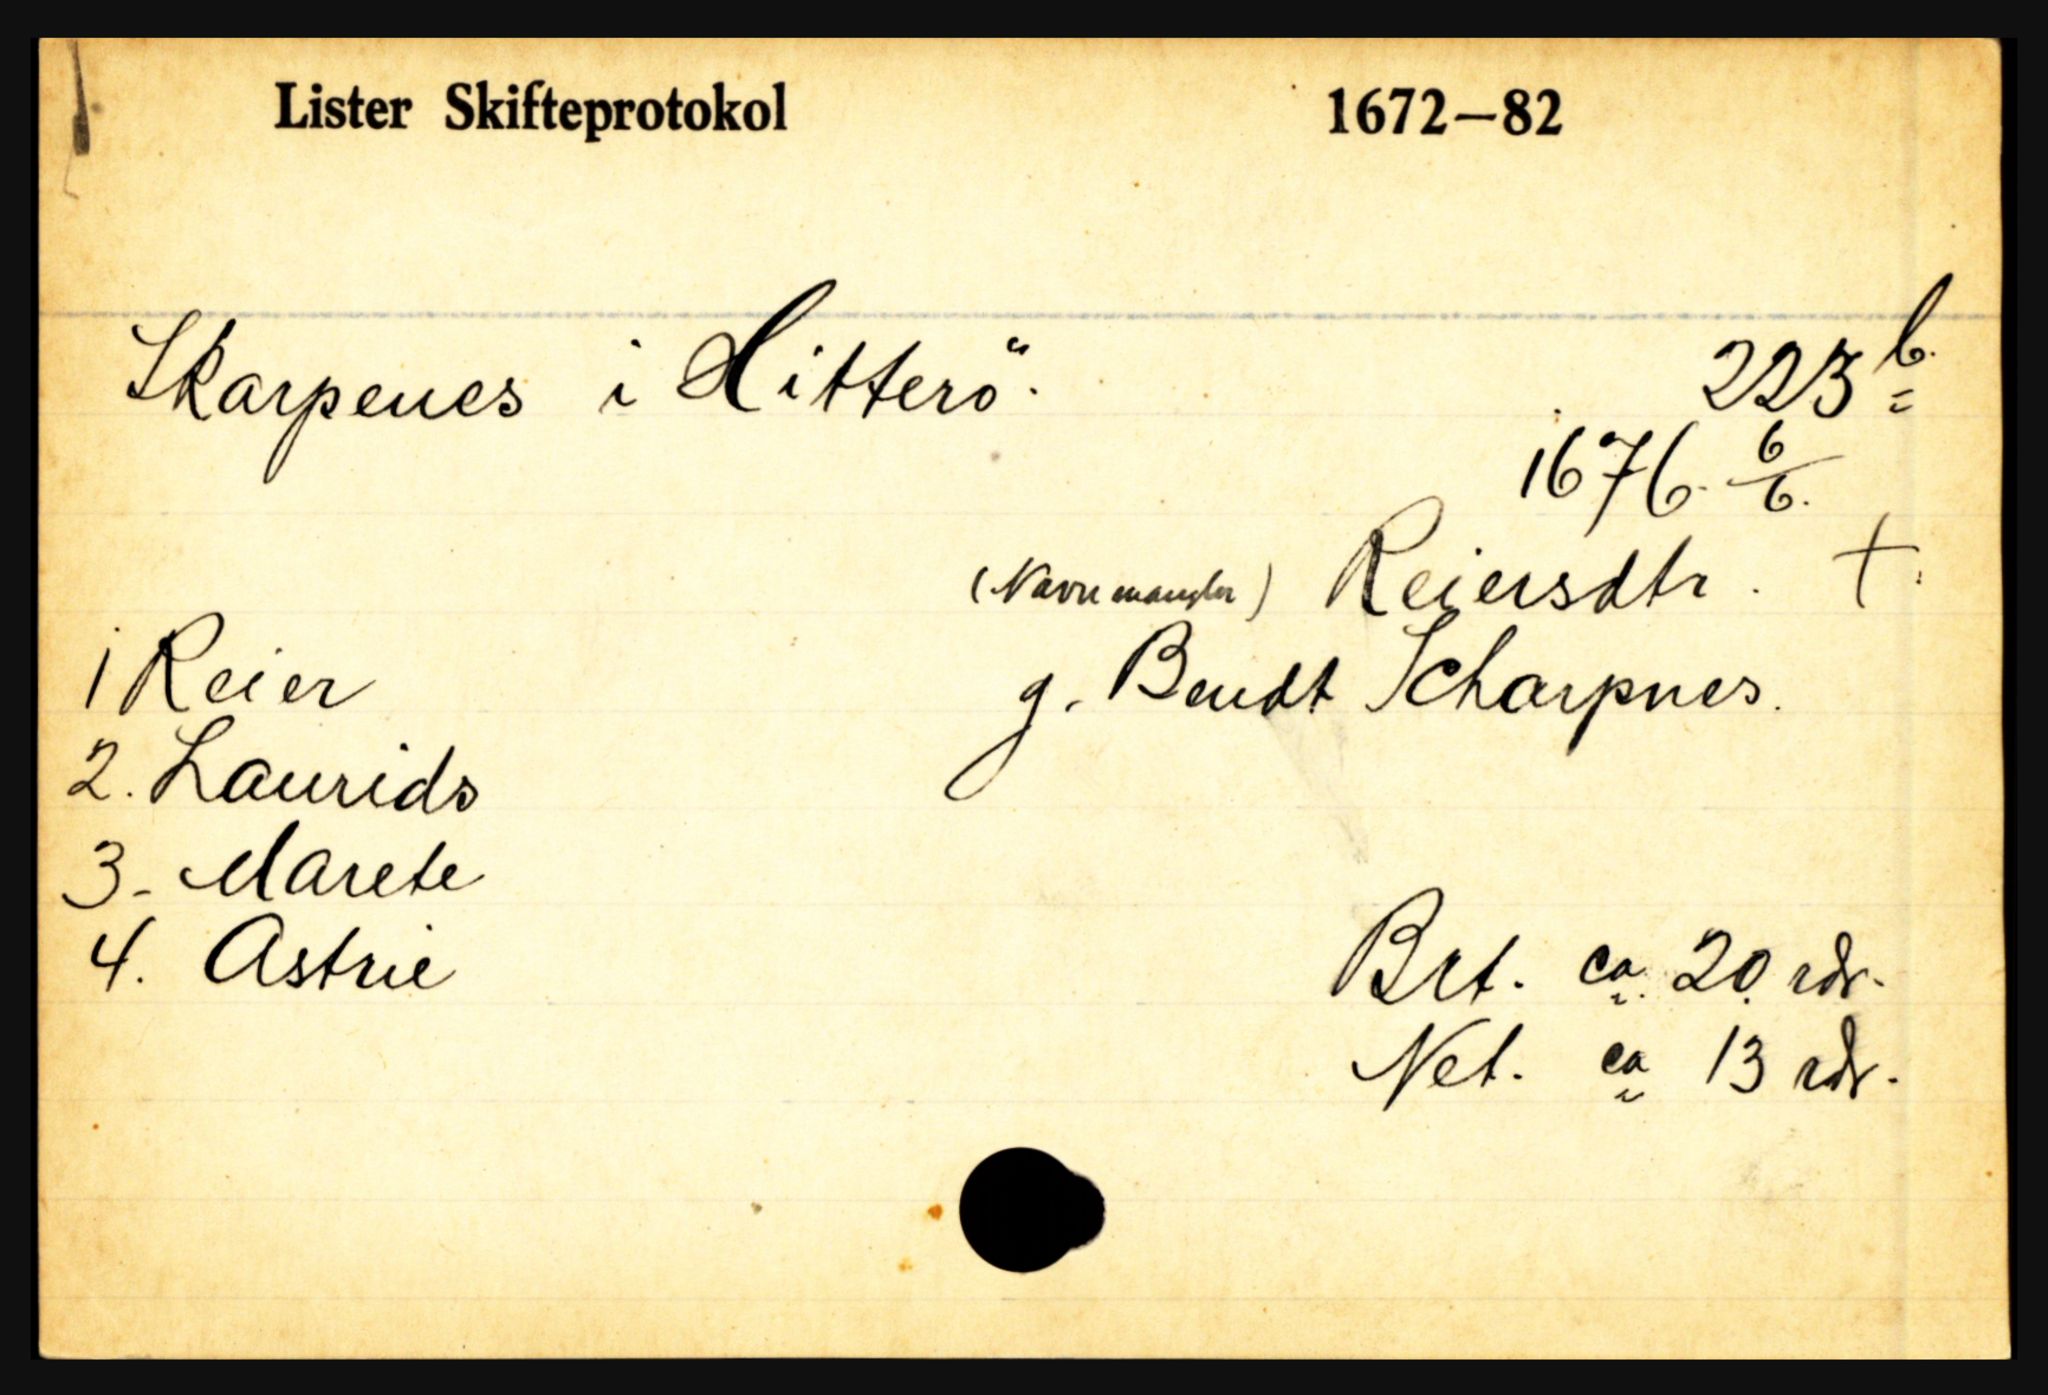 Lister Skifteprotokol 1672—82
Skarpenes i Hitterö. 223 b.
1676. 6/6.
(Navn mangler) Reiersdtr. +
1 Reier g. Bendt Scharpnes.
2. Laurids
3- Marete
4. Astrie Brt. ca. 20 rdr.
Net. ca 13 rdr.